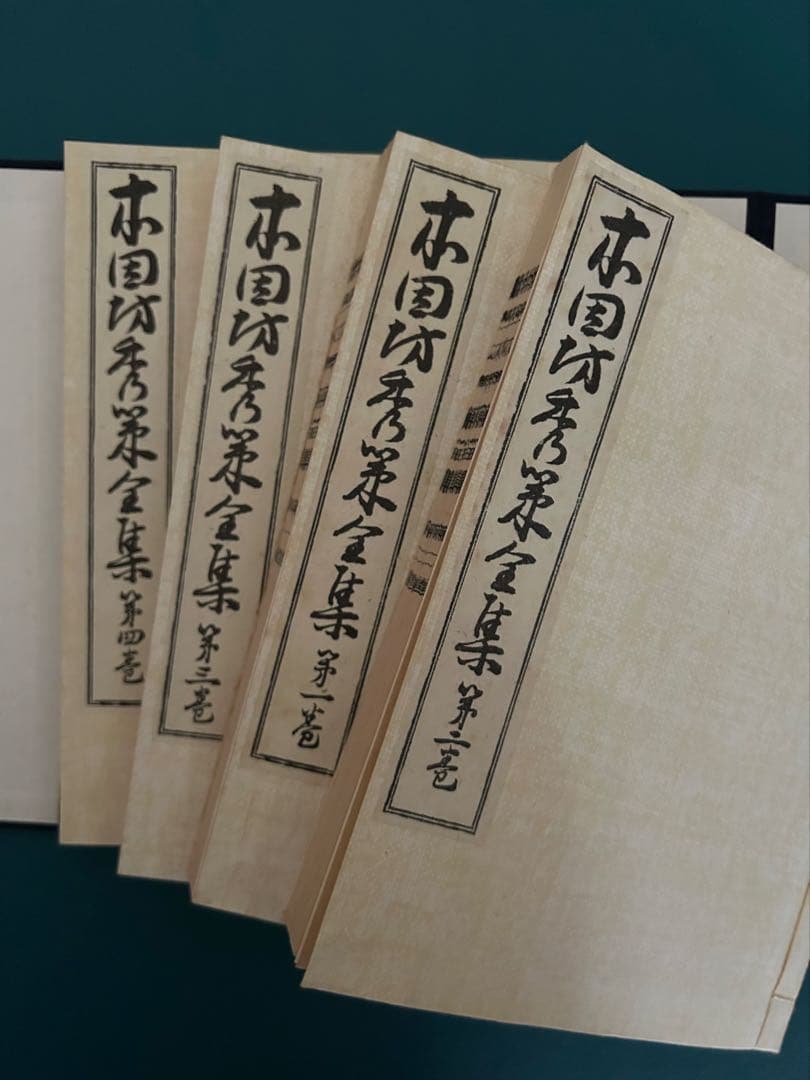 本因坊秀策全集 第四巻
本因坊秀策全集 第三巻
本因坊秀策全集 第一巻
本因坊秀策全集 第二巻